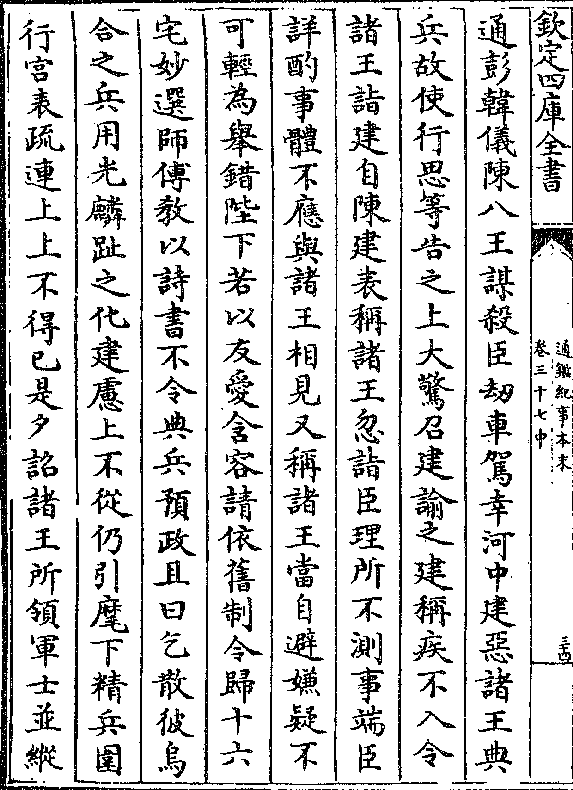 欽定四庫全書
通鑑紀事本末
卷三十七中
三四
通彭韓儀陳八王謀殺臣刼車駕幸河中建惡諸王典
兵故使行思等告之上大驚召建諭之建稱疾不入令
諸王詣建自陳建表稱諸王忽詣臣理所不測事端臣
詳酌事體不應與諸王相見又稱諸王當自避嫌疑不
可輕為舉錯陛下若以友愛含容請依舊制令歸十六
宅妙選師傅敎以詩書不令典兵預政且曰乞散彼烏
合之兵用光麟趾之化建慮上不從仍引麾下精兵圍
行宫表疏連上上不得已是夕詔諸王所領軍士並縱